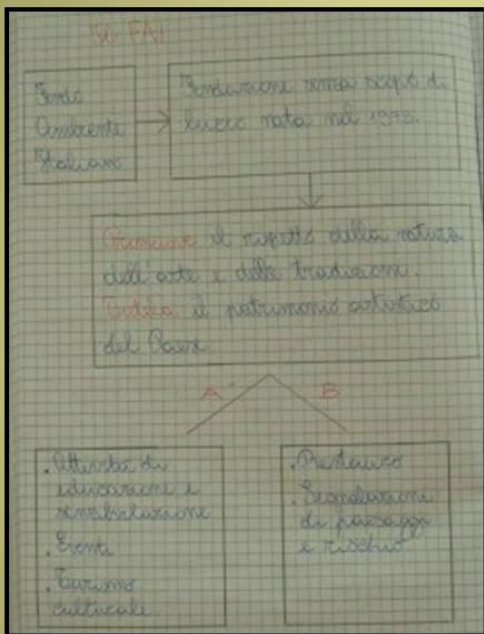 IL FAI
Fondo
Ambiente
Italiano
Fondazione senza scopo di
lucro nata nel 1975.
Promuove il rispetto della natura
dell'arte e delle tradizioni.
Tutela il patrimonio artistico
del Paese
A
B
. Attività di
educazione e
sensibilizzazione
. Eventi
. Turismo
culturale
. Restauro
. Segnalazione
di paesaggi
a rischio